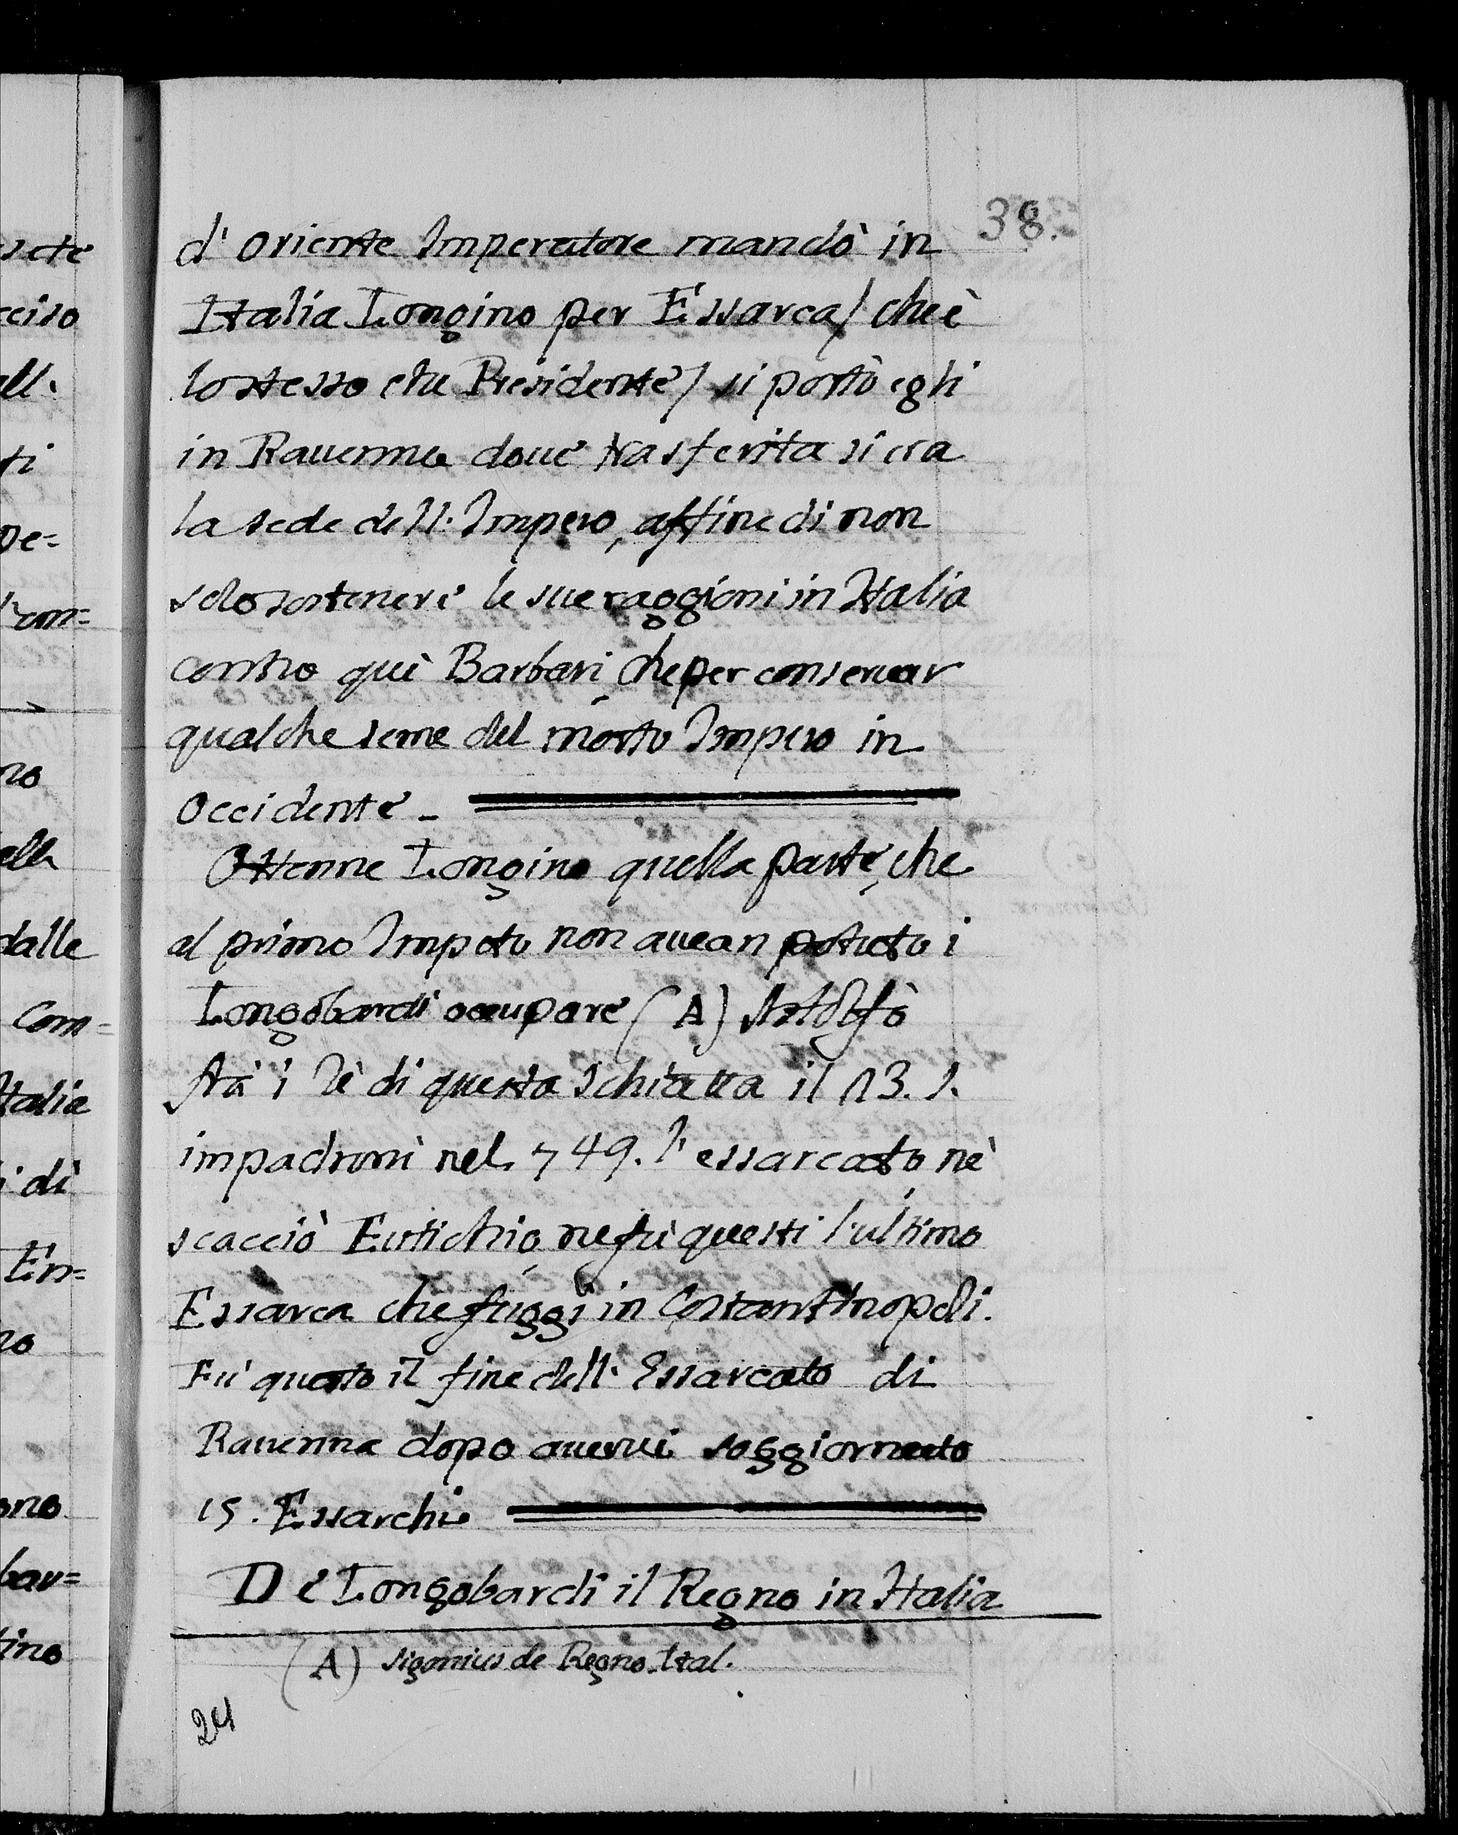 38.
d' Oriente Imperatore mandò in
Italia Longino per Essarca / che è
lo stesso che Presidente / si portò egli
in Rauenna doue trasferita si era
la sede dell' Impero, affine di non
solo sostenere le sue raggioni in Italia
contro què Barbari, che per conseruar
qualche seme del morto Impero in
Occidente_
Ottenne Longino quella parte, che
al primo Impeto non auean potuto i
Longobardi occupare (A) Astolfo
frà i Rè di questa schiatta il 13. s'
impadronì nel 749. l' essarcato, nè
scacciò Eutichio, ne fù questi l'ultimo
Essarca che fuggì in Costantinopoli.
Fù questo il fine dell' Essarcato di
Rauenna dopo auerui soggiornato
15. Essarchi
De Longobardi il Regno in Italia
(A) Sigonius de Regno Ital.
24
sete
cciso
all'
ti
pe=
no
ella
dalle
Com=
Italia
i dì
En=
no
ono
bar=
tino